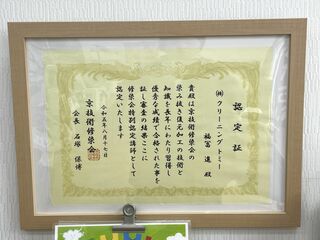 認定証
㈱クリーニングトミー
福冨 進 殿
貴殿は京技術修染会の
染み抜き復元加工の技術と
知識を長年にわたり習得し
優秀な成績で合格された事を
証し審査の結果ここに
修染会特別認定講師として
認定いたします
令和五年八月十七日
京技術修染会
会長 石塚 保博